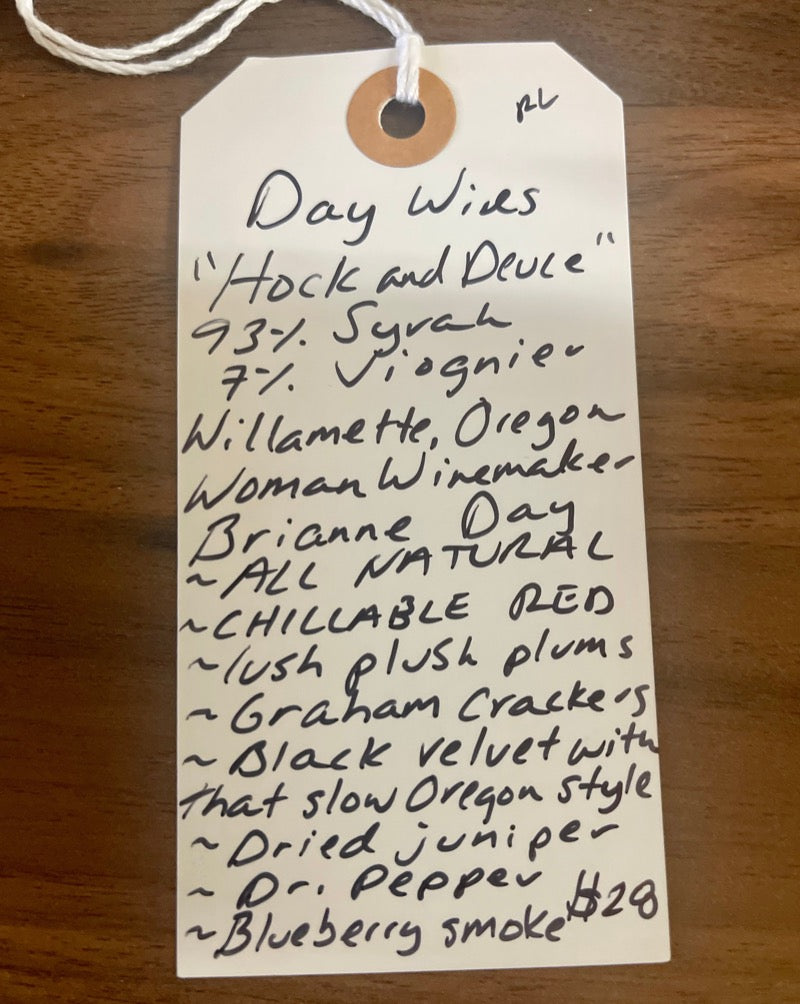 RL
Day Wines
"Hock and Deuce"
93% Syrah
7% Viognier
Willamette, Oregon
Woman Winemaker
Brianne Day
~ALL NATURAL
~CHILLABLE RED
~lush plush plums
~Graham Crackers
~Black velvet with
that slow Oregon style
~Dried juniper
~Dr. Pepper
~Blueberry smoke $28